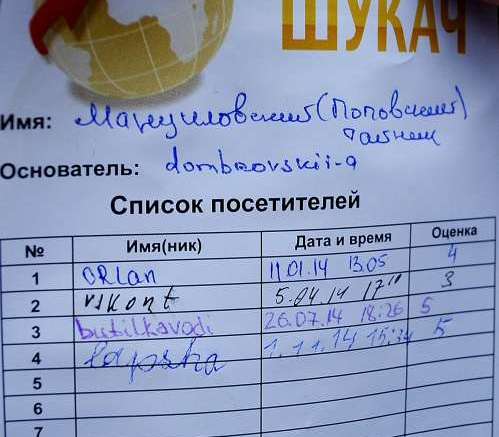 ШУКАЧ
Имя: Мануиловский (Поповский)
Основатель: dombrovskii-a
Список посетителей
№ Имя(ник) Дата и время Оценка
1 ORLan 11.01.14 13.05 4
2 vskont 5.04.14 17¹⁰ 3
3 butilkavodi 26.07.14 18:26 5
4 lapsha 1.11.14 15:34 5
5
6
7